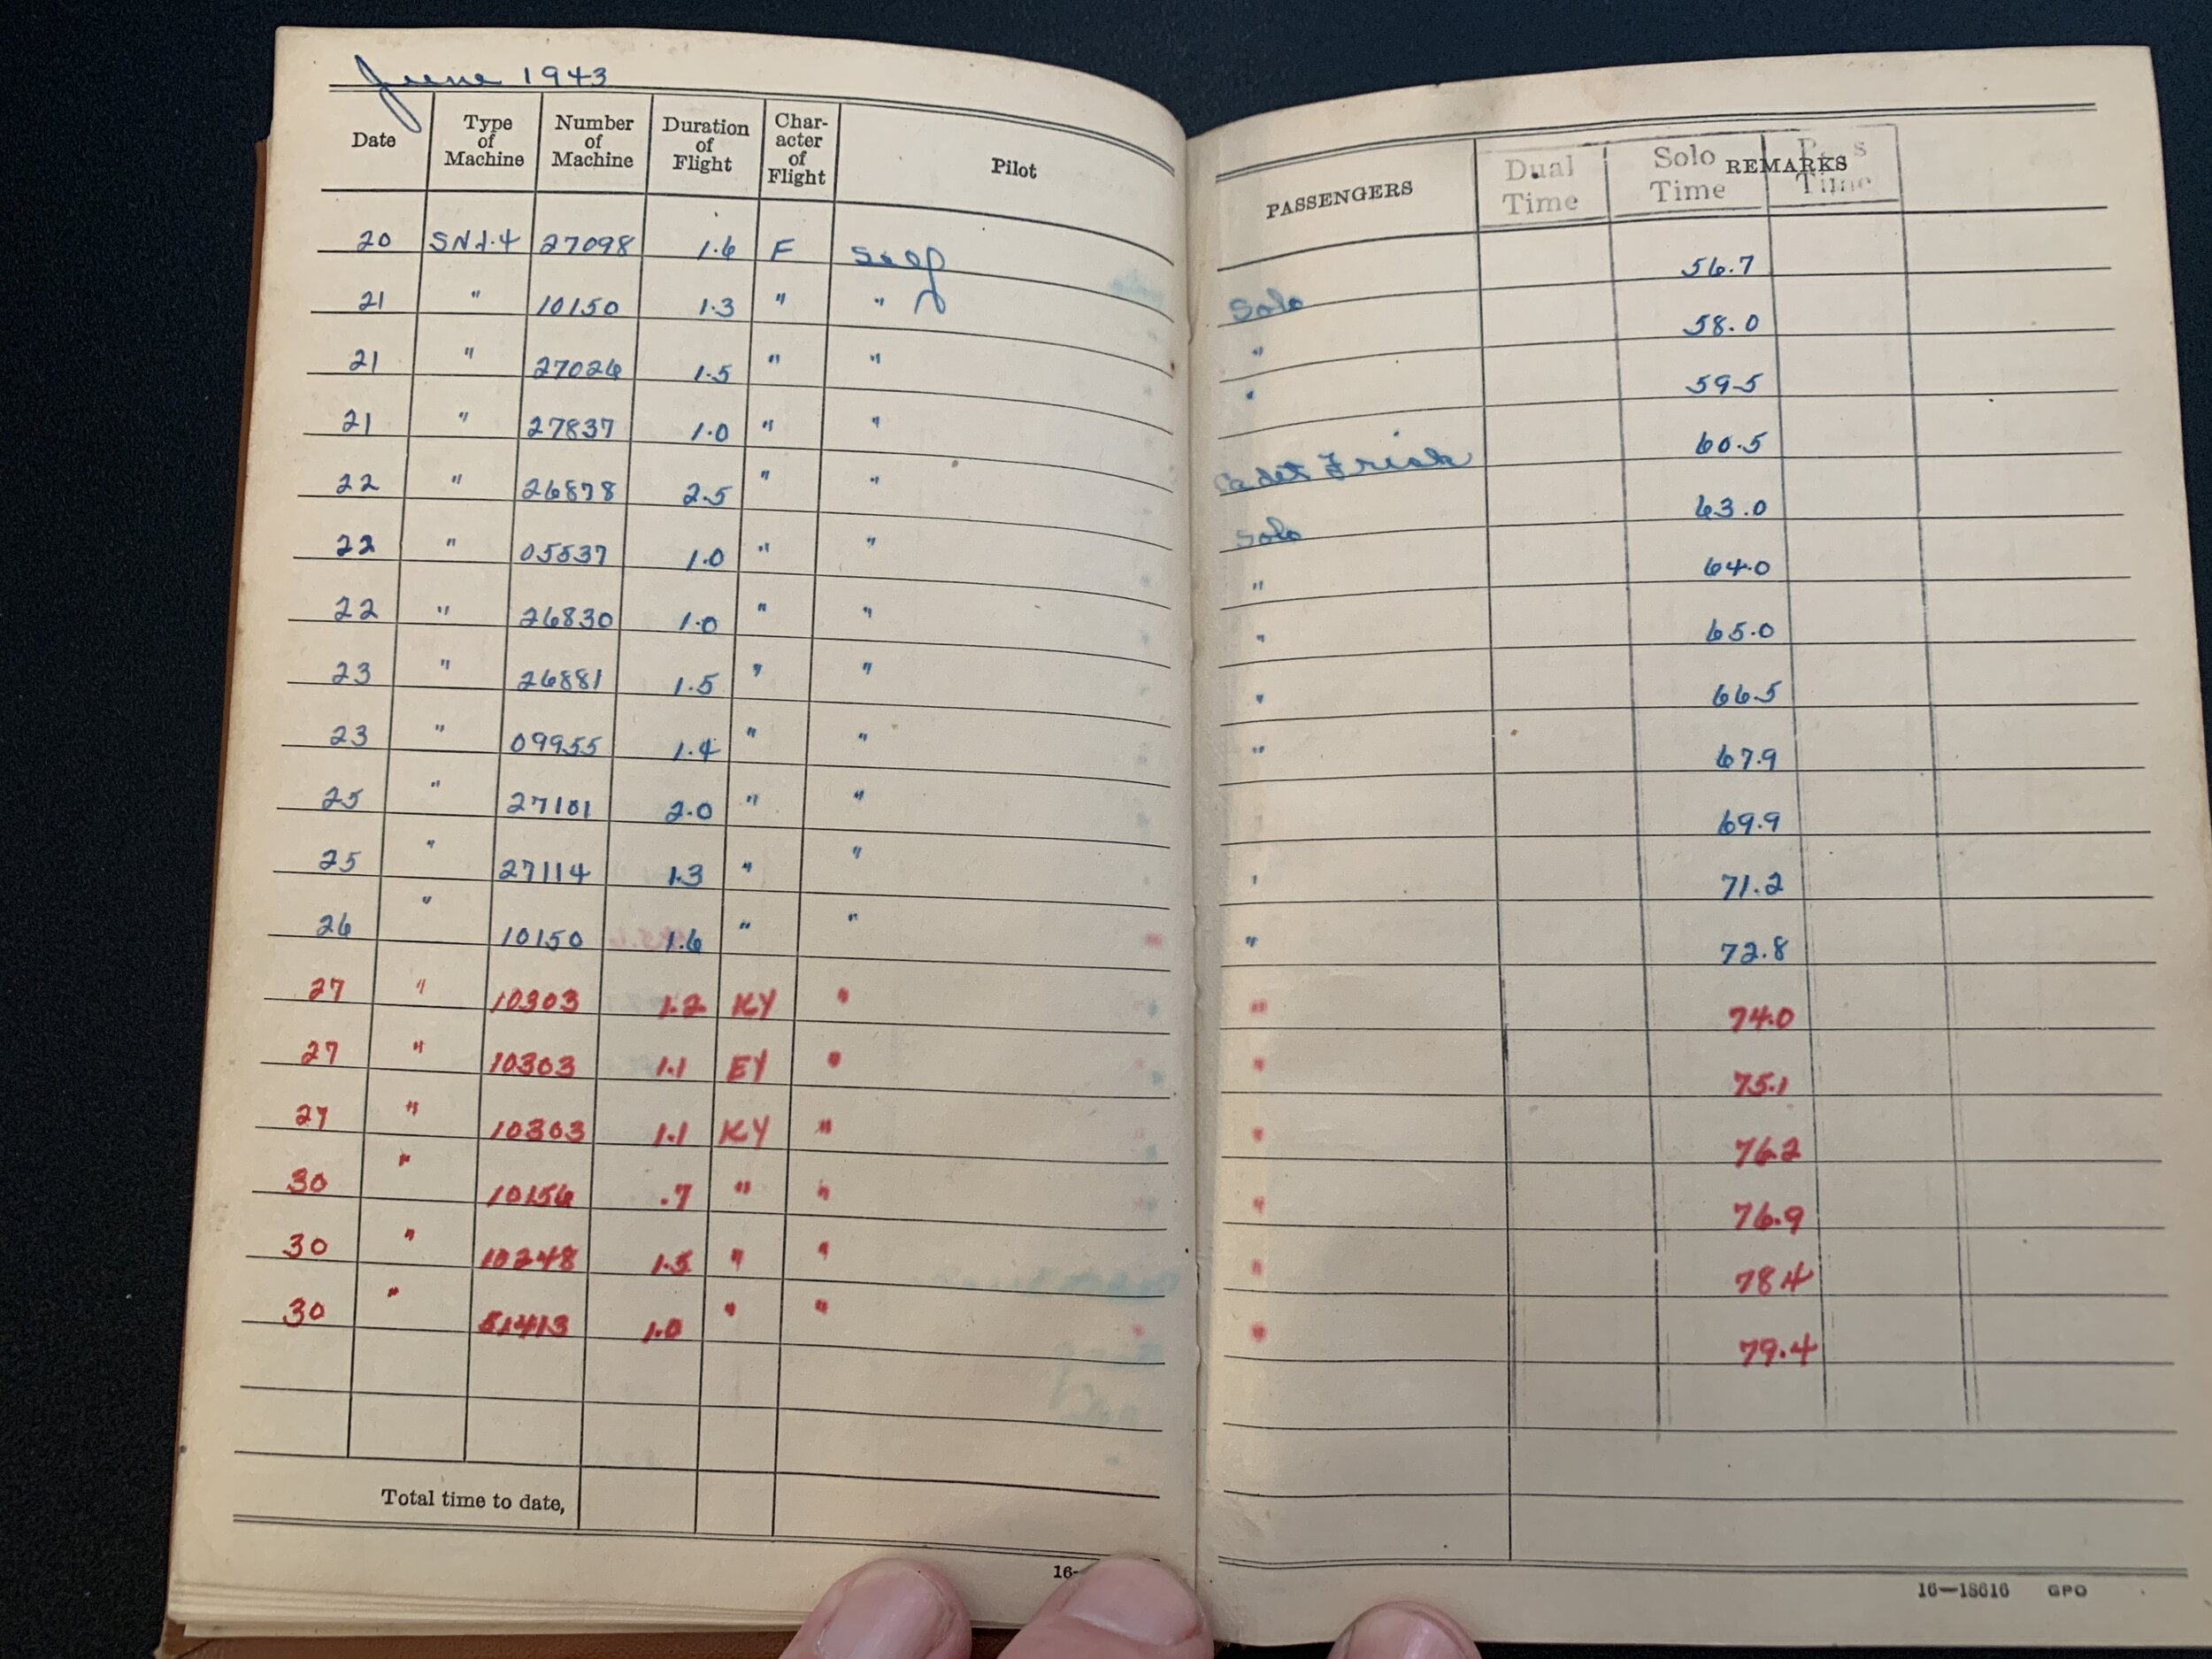 June 1943
Date Type of Machine Number of Machine Duration of Flight Character of Flight Pilot PASSENGERS Dual Time Solo Time REMARKS Time
20 SNJ-4 27098 1.6 F Self Solo 56.7
21 " 10150 1.3 " " " 58.0
21 " 27026 1.5 " " " 59.5
21 " 27837 1.0 " " Cadet 60.5
22 " 26878 2.5 " " Solo 63.0
22 " 05537 1.0 " " " 64.0
22 " 26830 1.0 " " " 65.0
23 " 26881 1.5 " " " 66.5
23 " 09955 1.4 " " " 67.9
25 " 27101 2.0 " " 69.9
25 " 27114 1.3 " " " 71.2
26 " 10150 1.6 " " " 72.8
27 " 10303 1.2 KY " " 74.0
27 " 10303 1.1 EY " " 75.1
27 " 10303 1.1 KY " " 76.2
30 " 10156 .7 " " " 76.9
30 " 10248 1.5 " " " 78.4
30 " 51413 1.0 " " " 79.4
Total time to date,
16-
16—18616 GPO